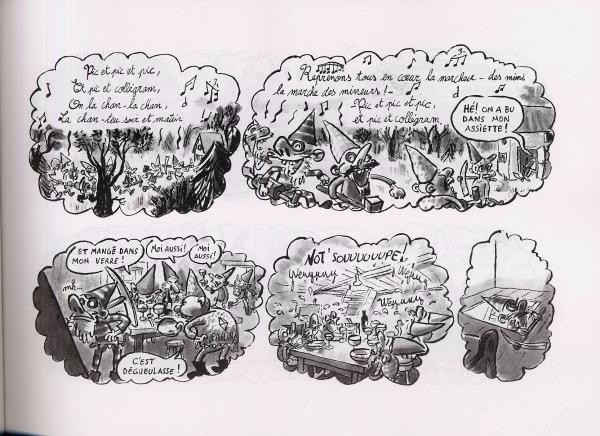 Pic et pic et pic,
Et pic et collégram,
On la chan-la chan,
La chan-teu soir et matin
Reprenons tous en cœur la marcheux - des mimi
la marche des mineurs !-
Pic et pic et pic,
et pic et collégram
HÉ! ON A BU
DANS MON
ASSIETTE !
ET MANGÉ DANS
MON VERRE !
MOI AUSSI !
MOI
AUSSI !
C'EST
DÉGUEULASSE !
NOT' SOUUUUUUPE !